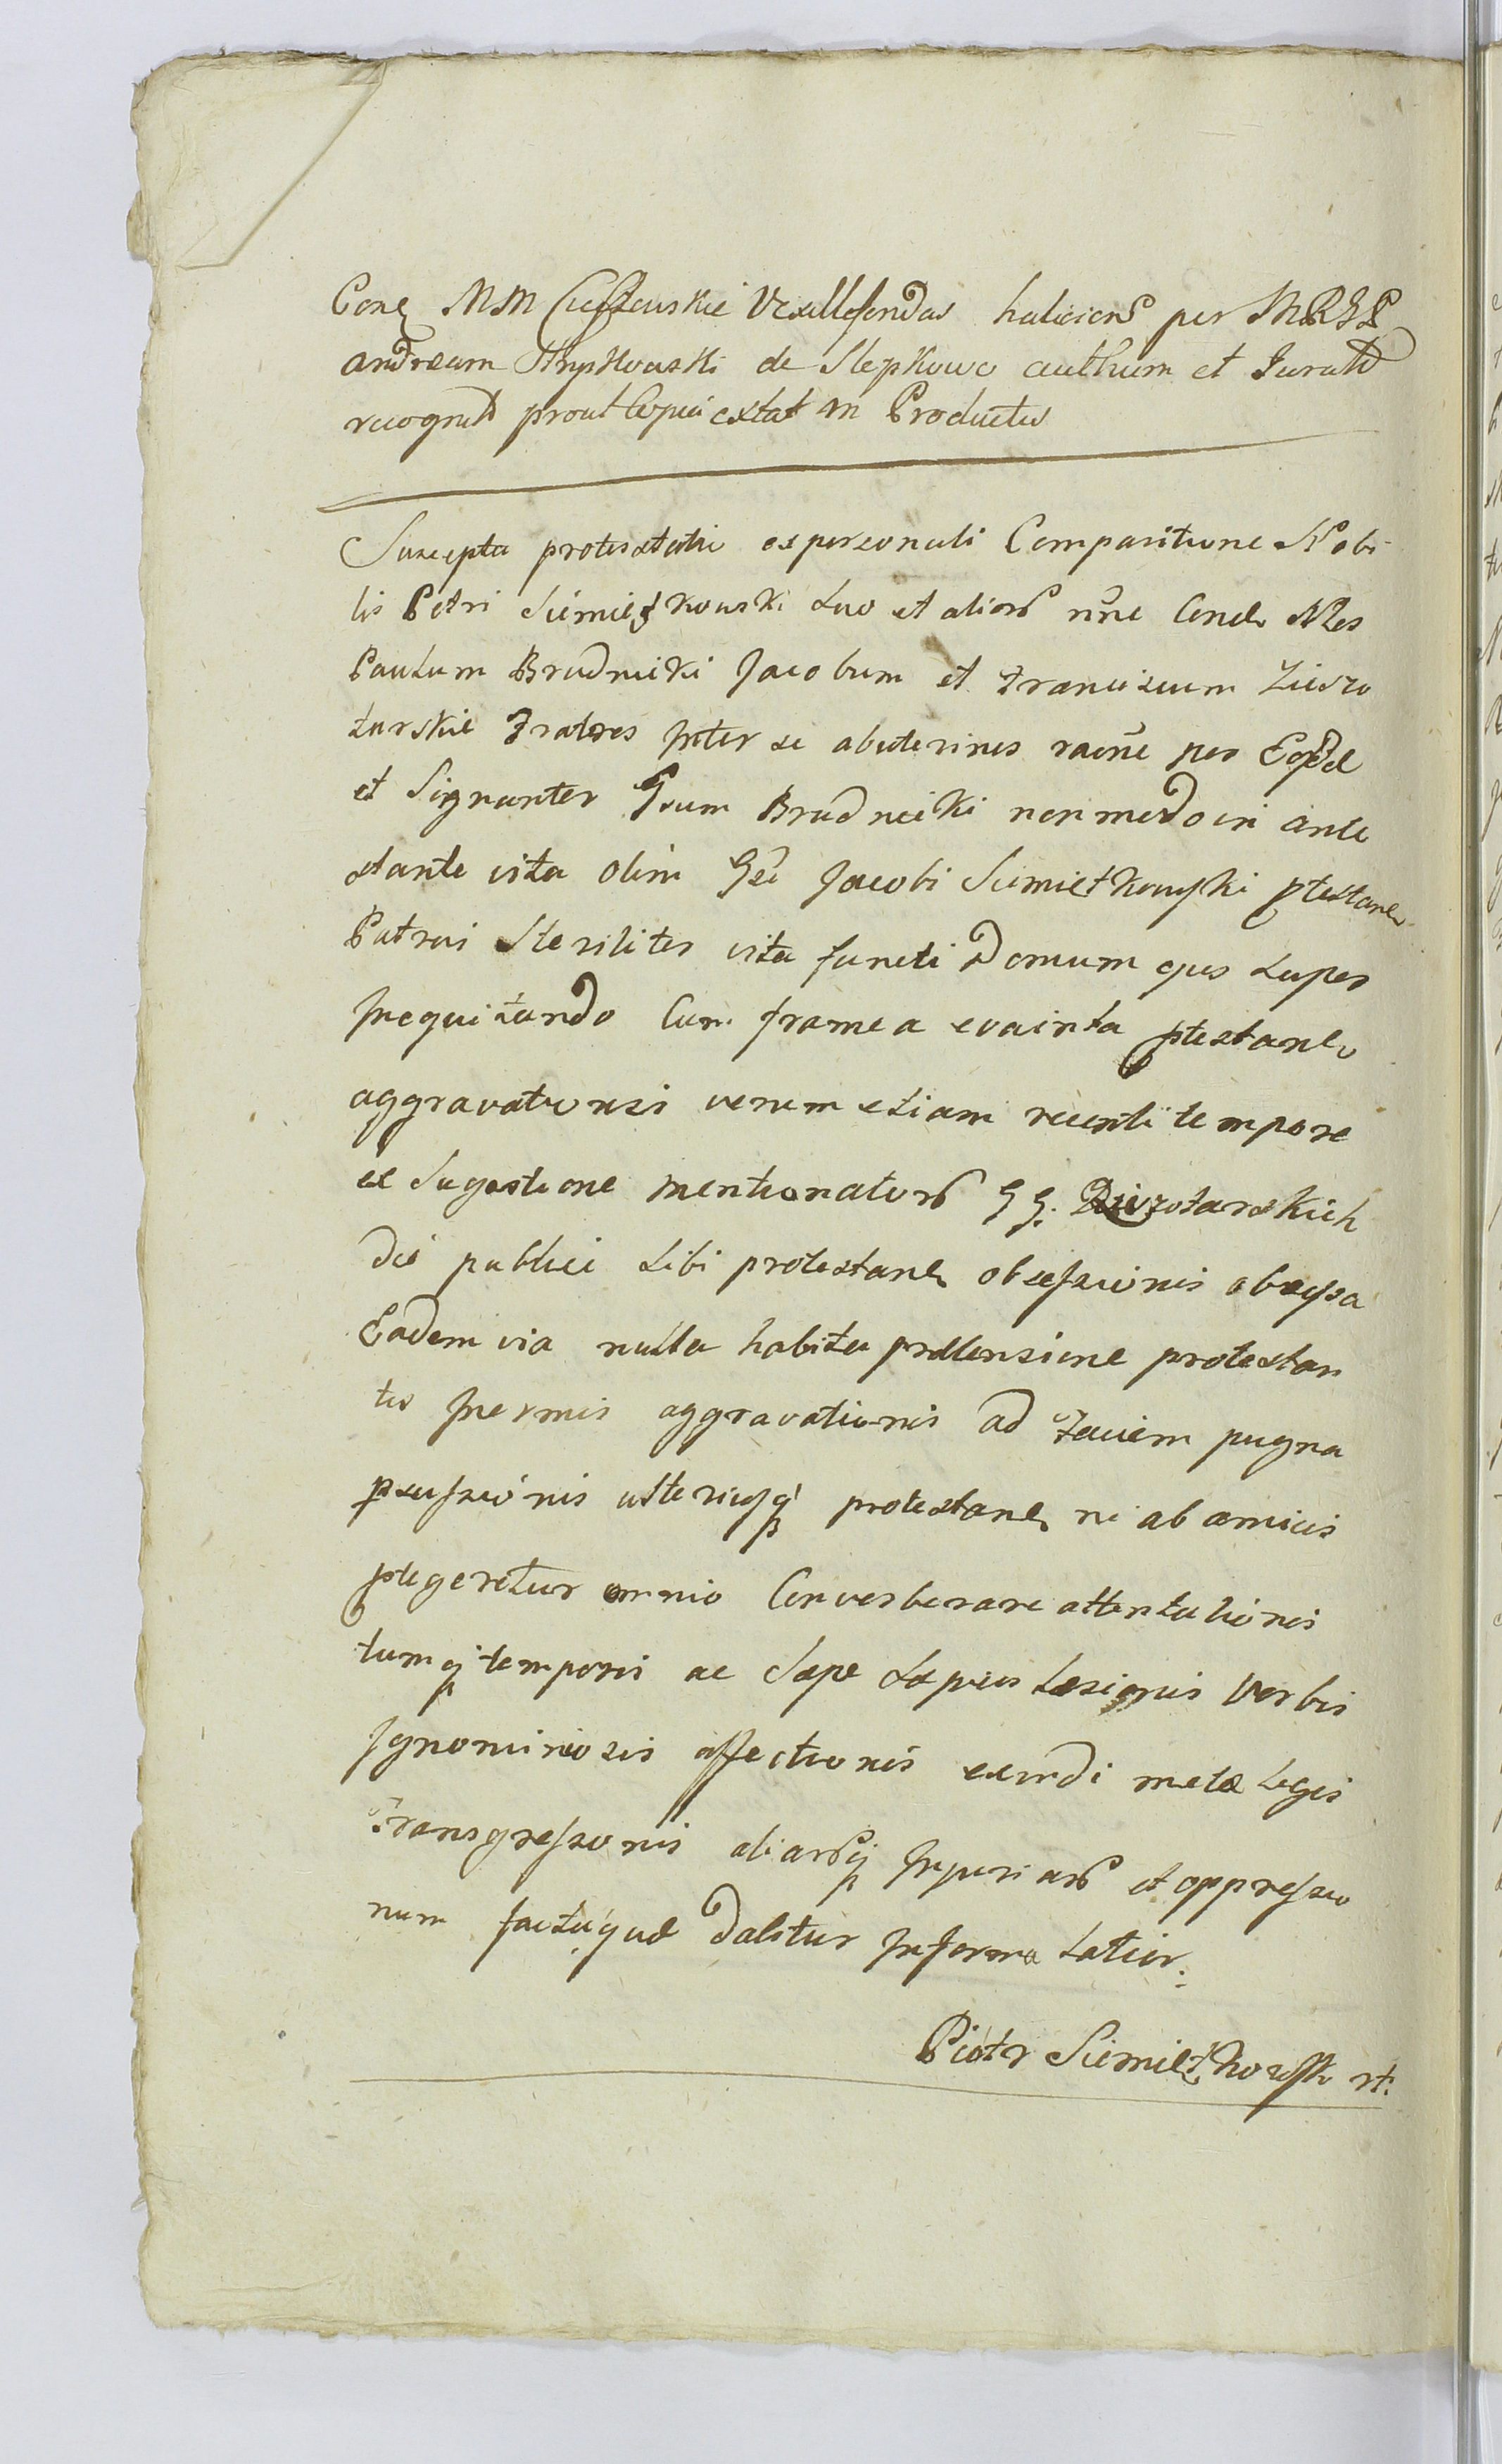 Conq MM Cieszewskie Vexilloferidas halicien per MRGG
andream Strzpkowski de Slepkowo authum et Jurato
recognit prout Copia extat in Productis
Suscepta protestatio ex personali Comparitione Nobi-
lis Petri Siemiątkowski suo et aliorū nne Conqr NNos
Paulum Brudnicki Jacobum et Franciscum Ziezo
tarskie Fratres Inter se abuterines raone per Eosdē
et Signanter Gsum Brudnicki non modo in ante
stante vita olim Gsi Jacobi Siemiątkowski ptestanr
Patrui Steriliter vita functi Domum ejus super
Inequitando Cum framea evainta ptestanr
aggravationis verum etiam recenti tempore
ex Sugestione mentionatorū GG. Dziezotarskich
die publici sibi protestanr obsessionis obcessa
Eadem via nulla habita prætensione protestan
tis Inermis aggravationis ad Faciem pugna
pcussionis ulteriusq protestanr ni ab amicis
ptegeretur omnio Converberare attentationis
tumq temporis ac Sæpe sæpius Læsionis Verbis
Ignominiosis affectionis exindi metæ Legis
Transgressionis aliarūq Injuriarū et oppressio
num facta quæ dabitur Informa Latior.
Piotr Siemiątkowski rt.